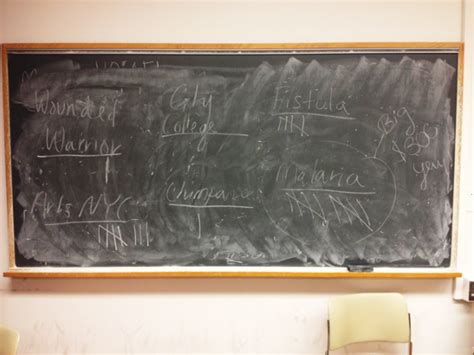 Wounded
Warrior
City
College
Fistula
Arts NYC
Malaria
Big
you